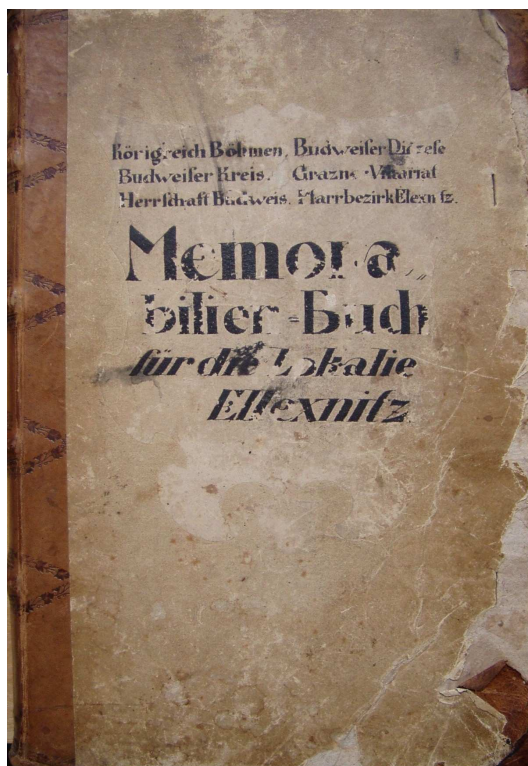 Königreich Böhmen, Budweiser Diözese
Budweiser Kreis. Vikariat
Herrschaft Budweis. Pfarrbezirk Elexnitz.
Memora
bilien-Buch
für die Lokalie
Ellexnitz